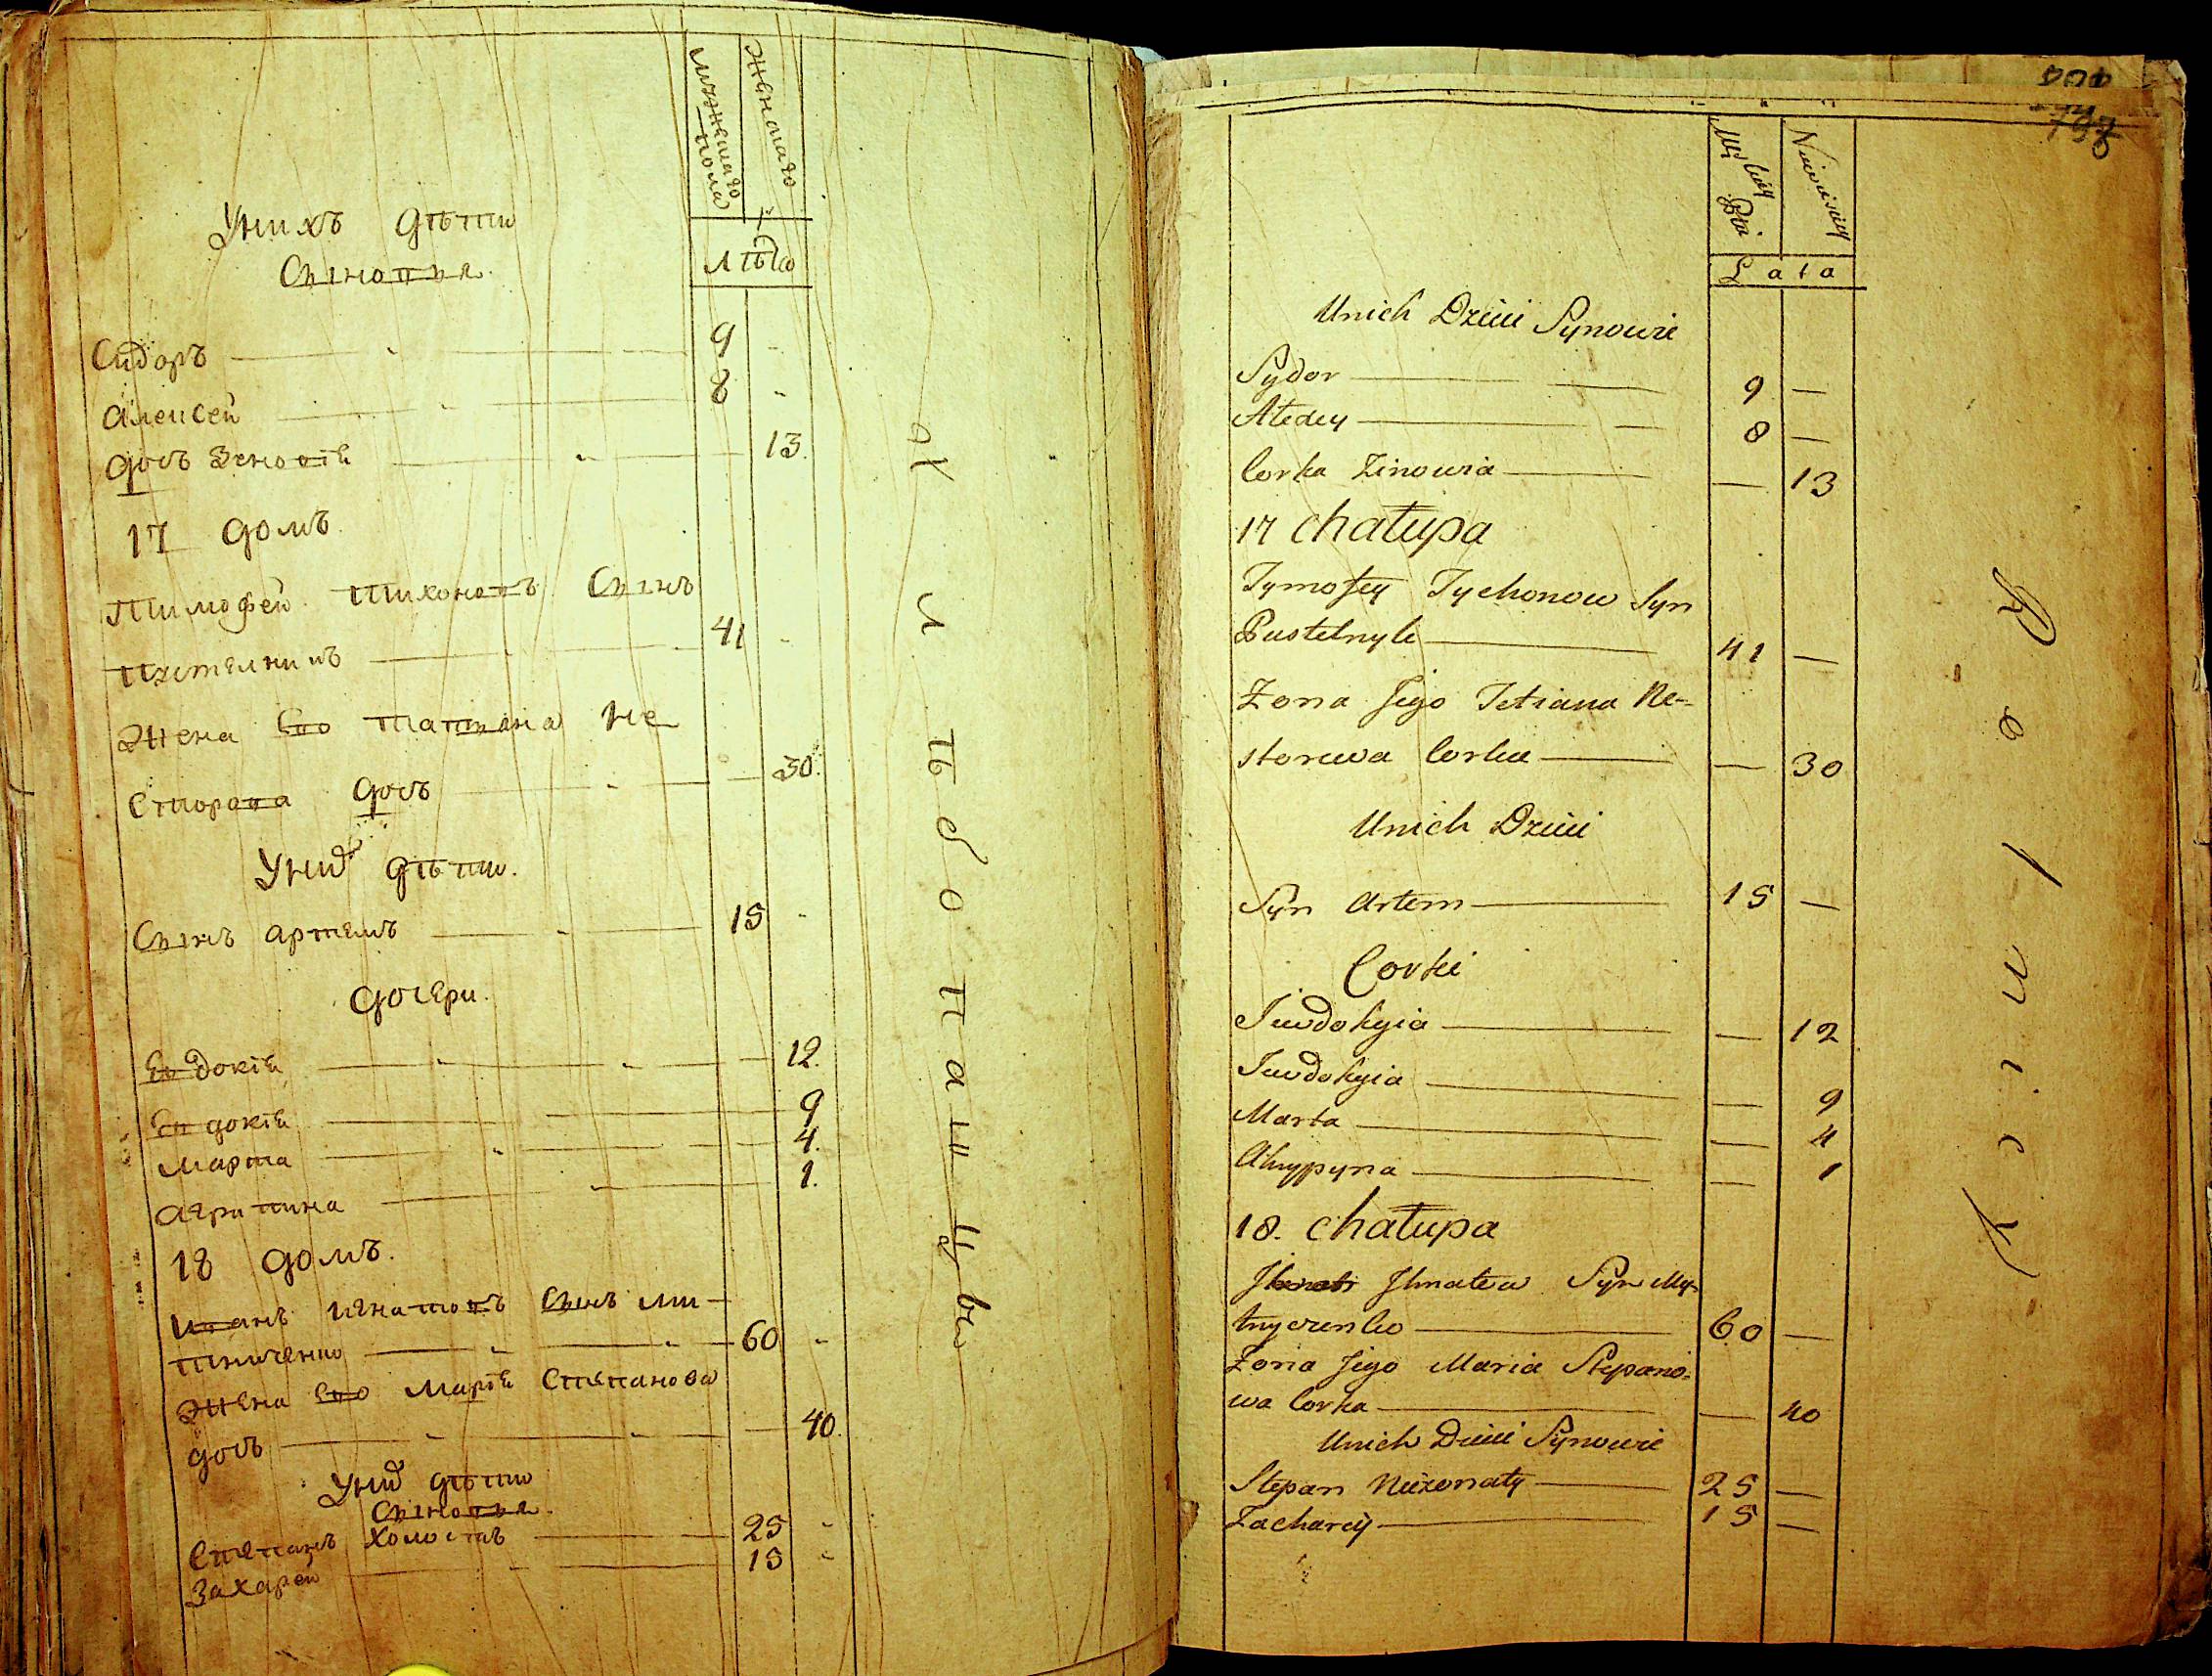 мужескаго пола
женскаго
лѣта
Унихъ дѣти
Сыновья.
Сидоръ 9
Алексей 8
дочь Зеновія 13.
17 домъ.
Тимофей Тихоновъ Сынъ
Пустелникъ 41
Жена Его Татіяна Не
сторова дочь 30.
Унихъ дѣти.
Сынъ Артемъ 15
дочери.
Евдокія 12.
Евдокія 9
Марта 4.
Агрипина 1.
18 домъ.
Иванъ Игнатовъ Сынъ Ми-
тниченко 60
Жена Его Марія Степанова
дочь 40.
Унихъ дѣти
Сыновья.
Степанъ Холостъ 25
Захарей 15
хлѣбопашцы
798
Męskiey Płci
Niewieściey
Lata
Unich Dzieci Synowie
Sydor 9 —
Alexey 8 —
Corka Zinowia — 13
17 Chałupa
Tymofey Tychonow Syn
Pustelnyk 41 —
Żona Jego Tetiana Ne-
storowa Corka — 30
Unich Dzieci
Syn Artem 15 —
Corki
Iewdokyia — 12
Iewdokyia — 9
Marta — 4
Ahrypyna — 1
18. Chałupa
Ihnatow Syn My-
tnyczenko 60 —
Żona Jego Maria Stepano-
wa Corka — 40
Unich Dzieci Synowie
Stepan Nieżonaty 25 —
Zacharey 15 —
Rolnicy